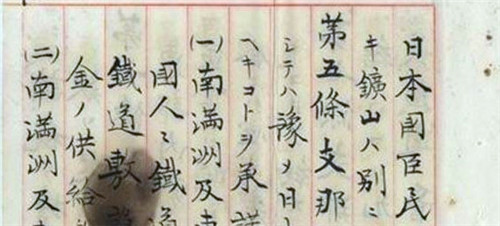 日本国臣民
キ鑛山ハ別ニ
第五條支那
シテハ豫メ日
ヘキコトヲ承諾
(一)南満洲及
國人ニ鐵道
鐵道敷設
金ノ供給
(二)南満洲及